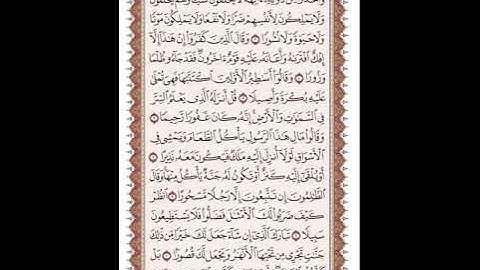 وَلَا يَمْلِكُونَ لِأَنفُسِهِمْ ضَرًّا وَلَا نَفْعًا وَلَا يَمْلِكُونَ مَوْتًا
وَلَا حَيَوٰةً وَلَا نُشُورًا ۝ وَقَالَ ٱلَّذِينَ كَفَرُوٓا۟ إِنْ هَٰذَآ إِلَّآ
إِفْكٌ ٱفْتَرَىٰهُ وَأَعَانَهُۥ عَلَيْهِ قَوْمٌ ءَاخَرُونَ فَقَدْ جَآءُو ظُلْمًا
وَزُورًا ۝ وَقَالُوٓا۟ أَسَٰطِيرُ ٱلْأَوَّلِينَ ٱكْتَتَبَهَا فَهِىَ تُمْلَىٰ
عَلَيْهِ بُكْرَةً وَأَصِيلًا ۝ قُلْ أَنزَلَهُ ٱلَّذِى يَعْلَمُ ٱلسِّرَّ
فِى ٱلسَّمَٰوَٰتِ وَٱلْأَرْضِ إِنَّهُۥ كَانَ غَفُورًا رَّحِيمًا ۝
وَقَالُوا۟ مَالِ هَٰذَا ٱلرَّسُولِ يَأْكُلُ ٱلطَّعَامَ وَيَمْشِى فِى
ٱلْأَسْوَاقِ لَوْلَآ أُنزِلَ إِلَيْهِ مَلَكٌ فَيَكُونَ مَعَهُۥ نَذِيرًا ۝
أَوْ يُلْقَىٰٓ إِلَيْهِ كَنزٌ أَوْ تَكُونُ لَهُۥ جَنَّةٌ يَأْكُلُ مِنْهَا وَقَالَ
ٱلظَّٰلِمُونَ إِن تَتَّبِعُونَ إِلَّا رَجُلًا مَّسْحُورًا ۝ ٱنظُرْ
كَيْفَ ضَرَبُوا۟ لَكَ ٱلْأَمْثَٰلَ فَضَلُّوا۟ فَلَا يَسْتَطِيعُونَ
سَبِيلًا ۝ تَبَارَكَ ٱلَّذِىٓ إِن شَآءَ جَعَلَ لَكَ خَيْرًا مِّن ذَٰلِكَ
جَنَّٰتٍ تَجْرِى مِن تَحْتِهَا ٱلْأَنْهَٰرُ وَيَجْعَل لَّكَ قُصُورًا ۝ بَلْ